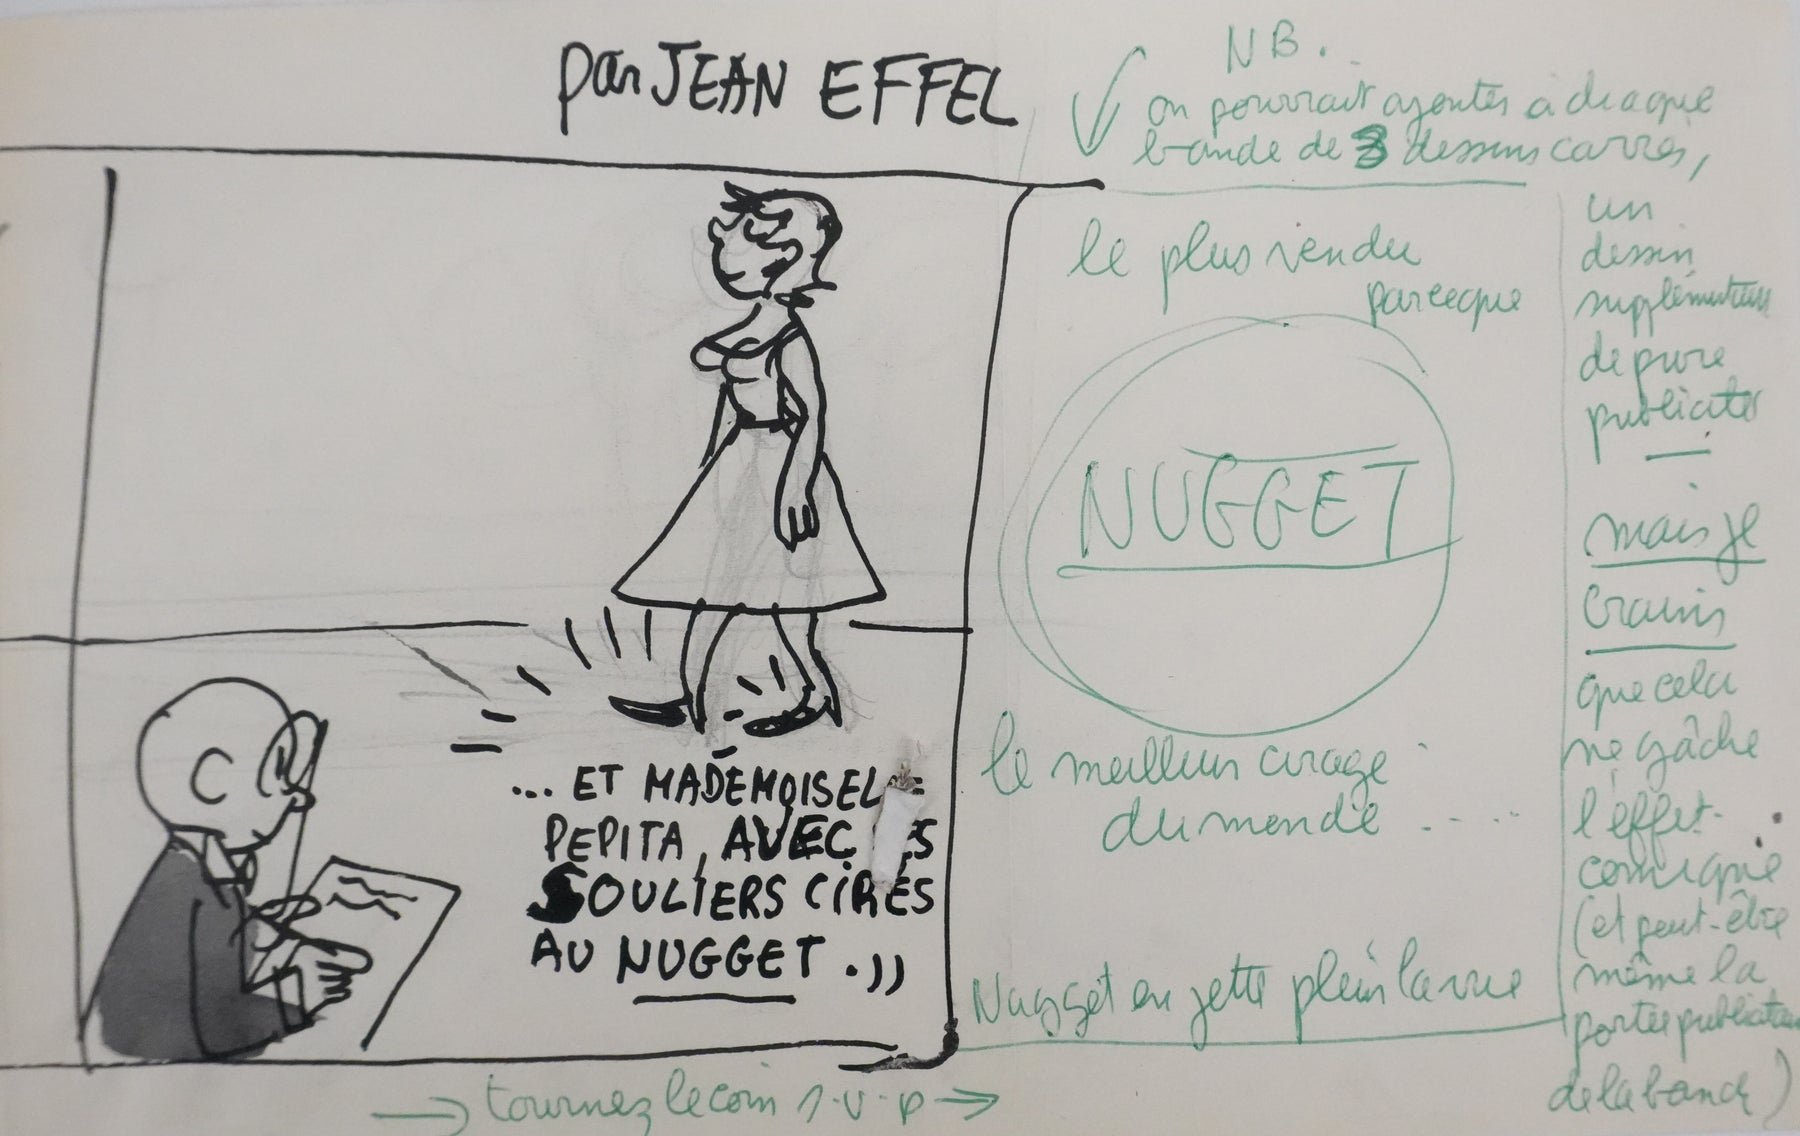 par JEAN EFFEL
NB.
on pourrait ajouter à chaque
bande de 3 dessins carrés,
un
dessin
supplémentaire
de pure
publicité
mais je
crains
que cela
ne gâche
l'effet
comique
(et peut-être
même la
portée publicitaire
de la bande)
le plus vendu
parceque
NUGGET
le meilleur cirage
du monde .....
Nugget en jette plein la vue
... ET MADEMOISEL
PEPITA, AVEC ES
SOULIERS CIRÉS
AU NUGGET.))
→ tournez le coin s.v.p →